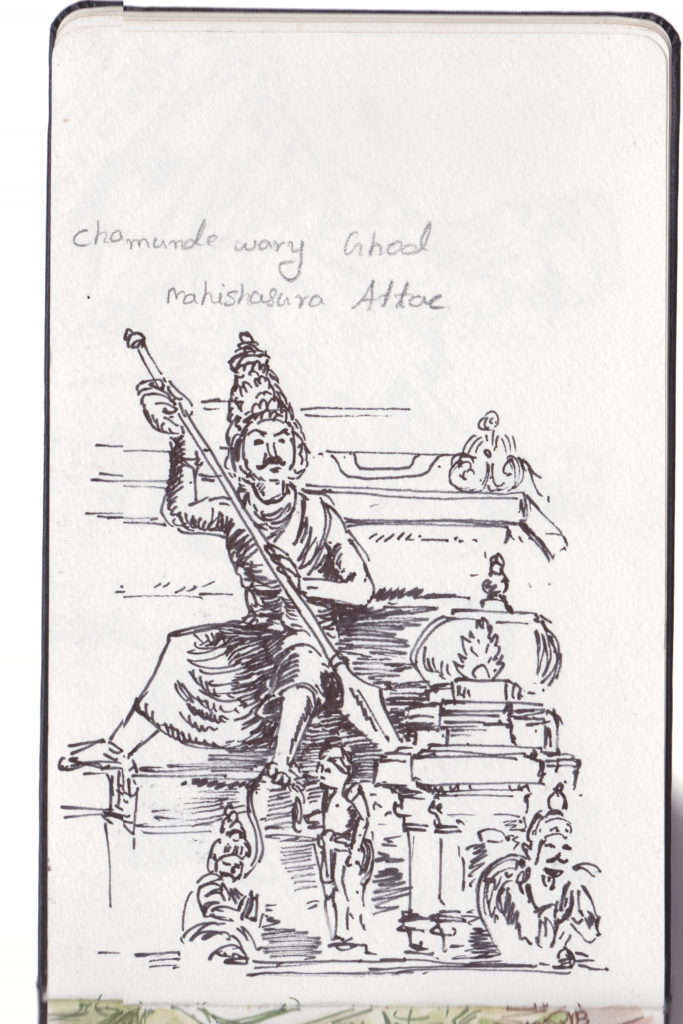 Chamunde wary Ghod
Mahishasura Attac